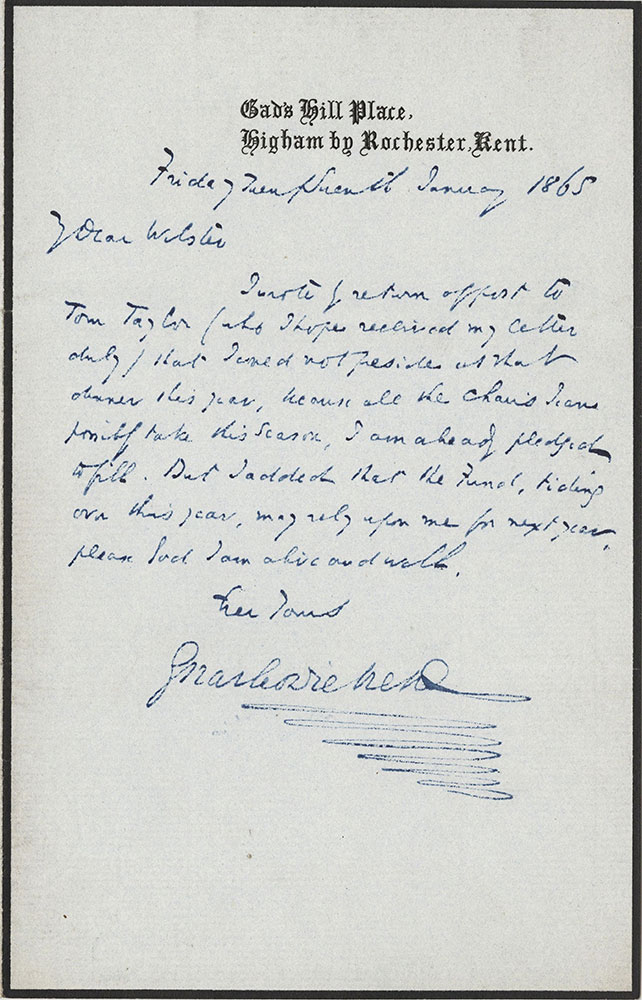 Gad's Hill Place,
Higham by Rochester, Kent.
Friday Twentieth January 1865
My Dear Webster
I wrote by return of post to
Tom Taylor (who I hope received my letter
duly) that I could not preside at that
dinner this year, because all the chairs I can
possibly take this season, I am already pledged
to fill. But I added that the Fund, tiding
over this year, may rely upon me for next year,
please God I am alive and well.
Ever Yours
Charles Dickens